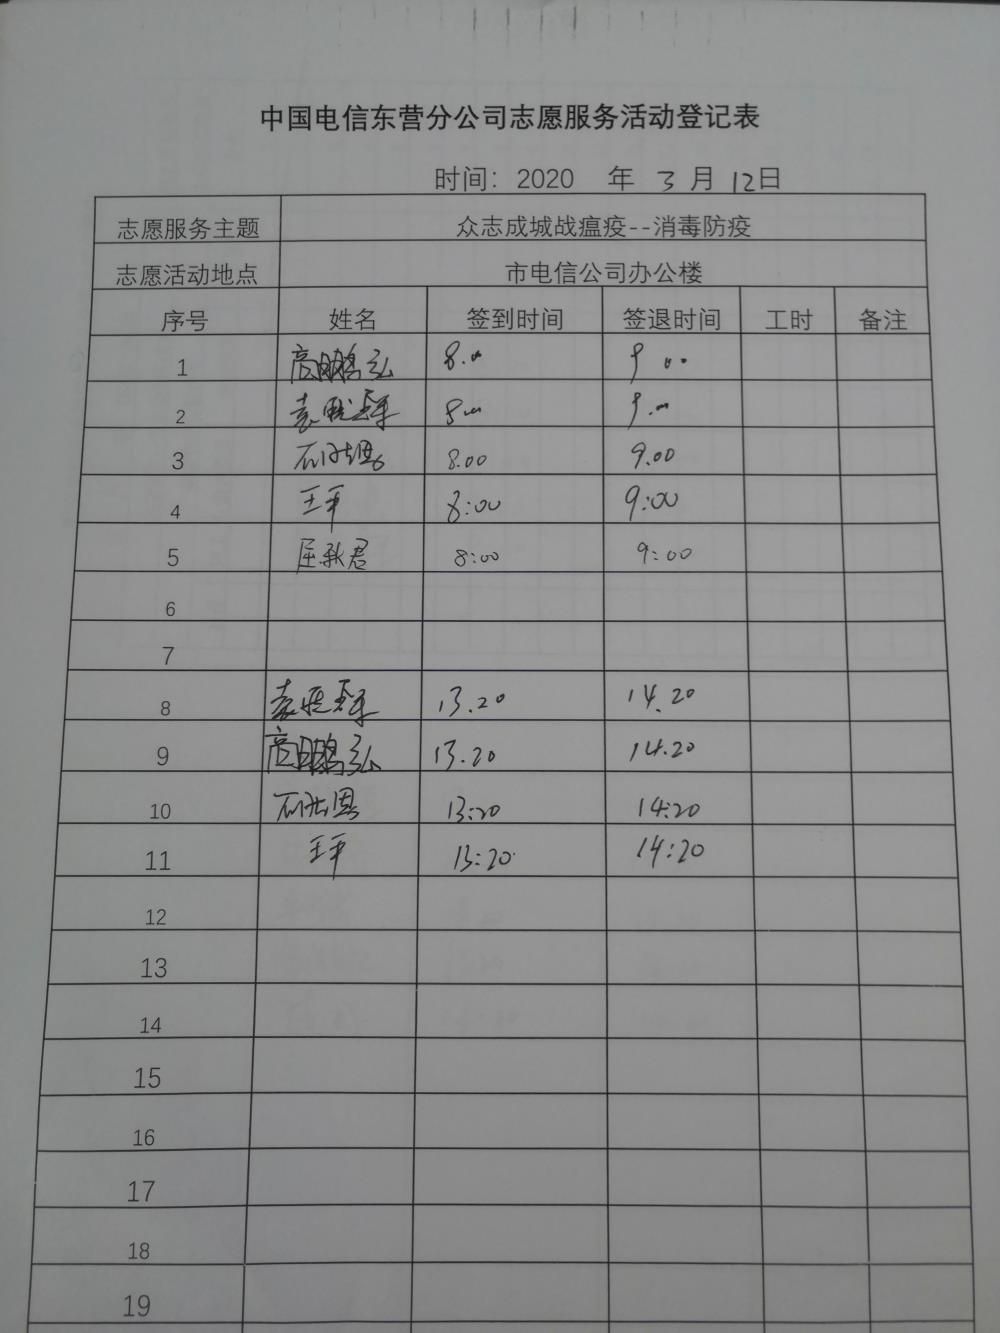 中国电信东营分公司志愿服务活动登记表
时间：2020 年 3 月 12日
志愿服务主题 众志成城战瘟疫--消毒防疫
志愿活动地点 市电信公司办公楼
序号 姓名 签到时间 签退时间 工时 备注
1 高鹏弘 8.00 9 00
2 8.00 9.00
3 8.00 9.00
4 王平 8:00 9:00
5 屈秋君 8:00 9:00
6
7
8 13.20 14.20
9 高鹏弘 13.20 14.20
10 13:20 14:20
11 王平 13:20 14:20
12
13
14
15
16
17
18
19